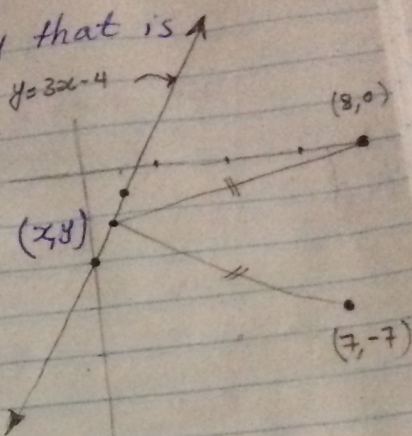 that is
y=3x-4
(8,0)
(x,y)
(7,-7)